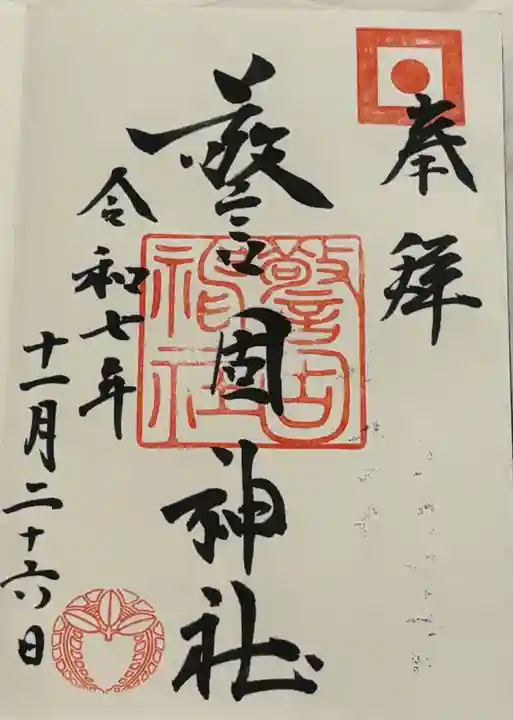 奉拝
警固神社
警固
神社
令和七年
十一月二十六日